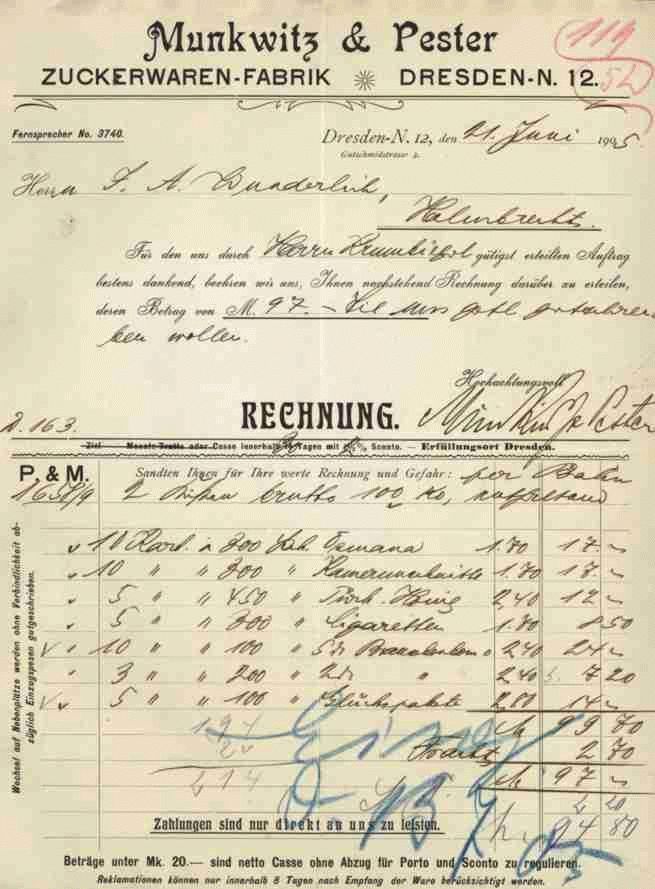 Munkwitz & Pester
119
ZUCKERWAREN-FABRIK DRESDEN-N. 12.
52
Fernsprecher No. 3740.
Dresden-N. 12, den 21. Juni 1905.
Gutschmidstrasse 2.
Herrn S. A. Wunderlich,
Helmbrechts.
Für den uns durch Herrn gütigst erteilten Auftrag
bestens dankend, beehren wir uns, Ihnen nachstehend Rechnung darüber zu erteilen,
deren Betrag von M. 97.– Sie uns gefl. gutschrei-
ben wollen.
Hochachtungsvoll
D. 163.
RECHNUNG.
Munkwitz & Pester
Ziel Monate Tratte oder Casse innerhalb Tagen mit % Sconto. — Erfüllungsort Dresden.
P. & M.
Sandten Ihnen für Ihre werte Rechnung und Gefahr: per Bahn
1658/9 2 Kisten brutto 100 Ko,
10 Kart. à 300 1.70 17.–
10 " " 300 " 1.70 17.–
5 " " 450 " Türk. Honig 2,40 12.–
5 " " 300 " Cigaretten 1.70 8 50
10 " " 100 " 2,40 24.–
3 " " 200 " " 2,40 7 20
5 " " 100 " Glückspakete 2,80 14.–
194 M 99 70
20 Fracht 2 70
214 M 97 –
2 20
94 80
Zahlungen sind nur direkt an uns zu leisten.
Beträge unter Mk. 20.— sind netto Casse ohne Abzug für Porto und Sconto zu regulieren.
Reklamationen können nur innerhalb 8 Tagen nach Empfang der Ware berücksichtigt werden.
Wechsel auf Nebenplätze werden ohne Verbindlichkeit ab-
züglich Einzugspesen gutgeschrieben.